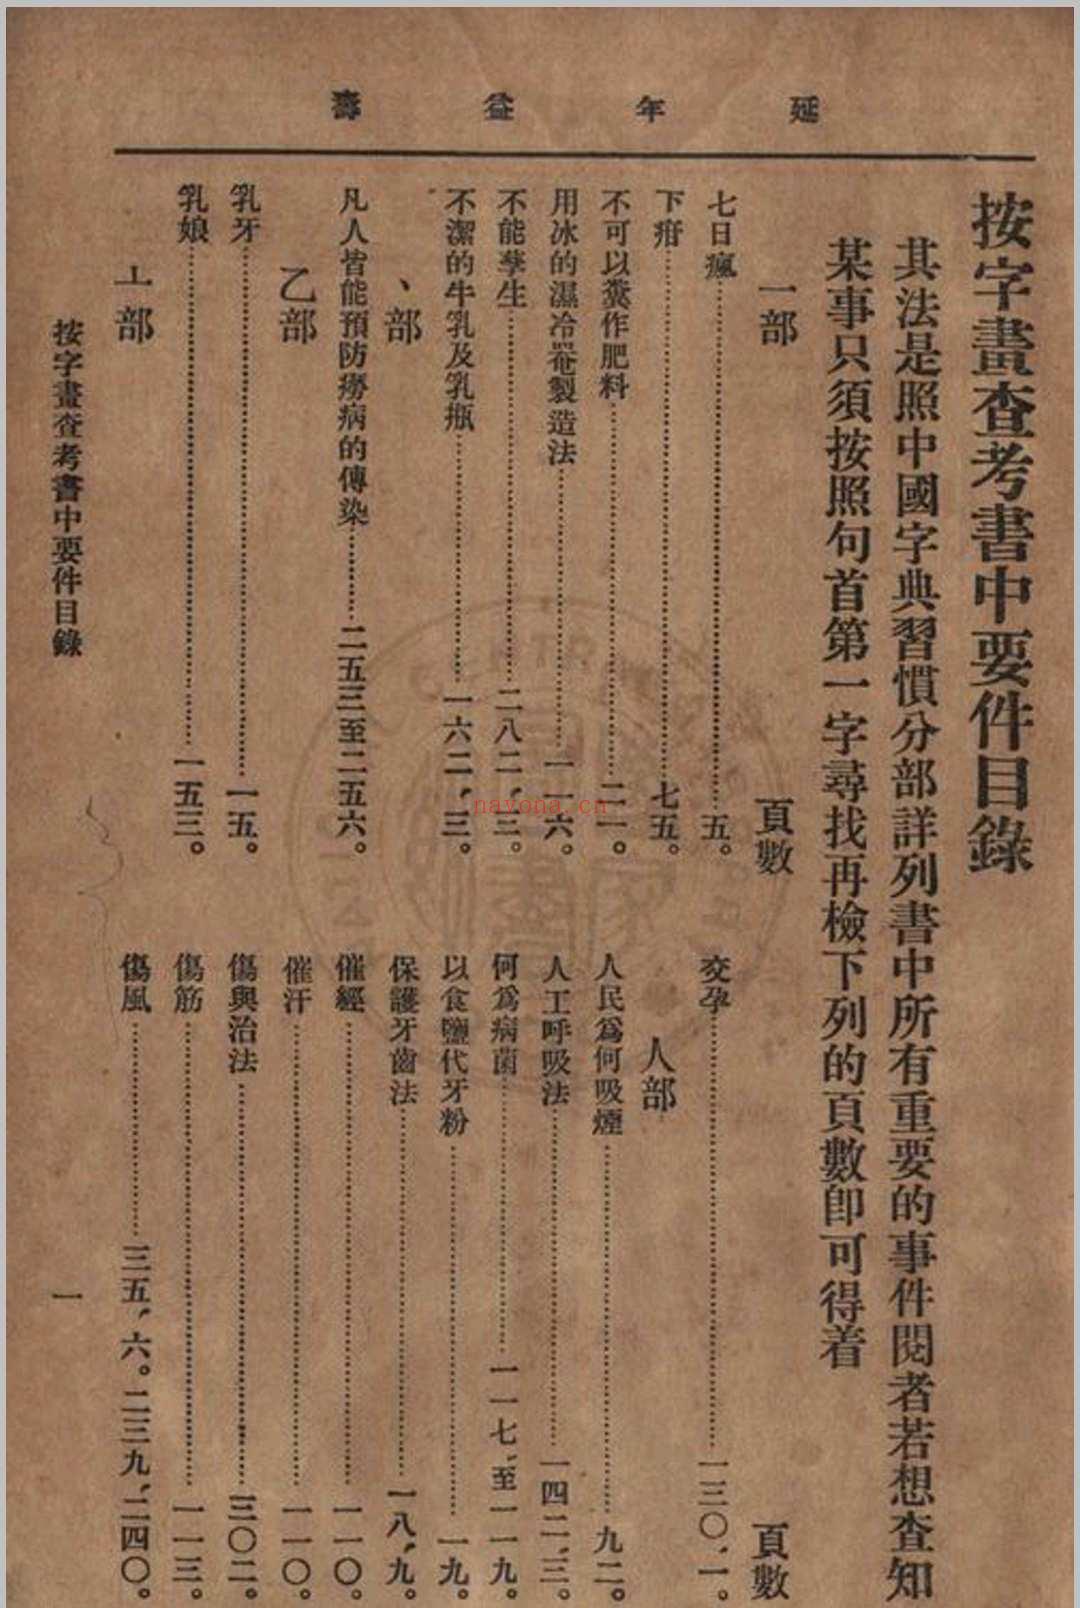 延年益壽
按字畫查考書中要件目錄
其法是照中國字典習慣分部詳列書中所有重要的事件閱者若想查知
某事只須按照句首第一字尋找再檢下列的頁數卽可得着
一部
頁數
七日瘋……五。
下疳……七五。
不可以糞作肥料……二一。
用冰的濕冷罨製造法……一一六。
不能孳生……二八二，三。
不潔的牛乳及乳瓶……一六二，三。
丶部
凡人皆能預防癆病的傳染……二五三至二五六。
乙部
乳牙……一五。
乳娘……一五三。
亠部
頁數
交孕……一三〇，一。
人部
人民爲何吸煙……九二。
人工呼吸法……一四二，三。
何爲病菌……一一七，至一一九。
以食鹽代牙粉……一九。
保護牙齒法……一八，九。
催經……一一〇。
催汗……一一〇。
傷與治法……三〇二。
傷筋……一一三。
傷風……三五，六。二三九，二四〇。
按字畫查考書中要件目錄
一
nayona.cn